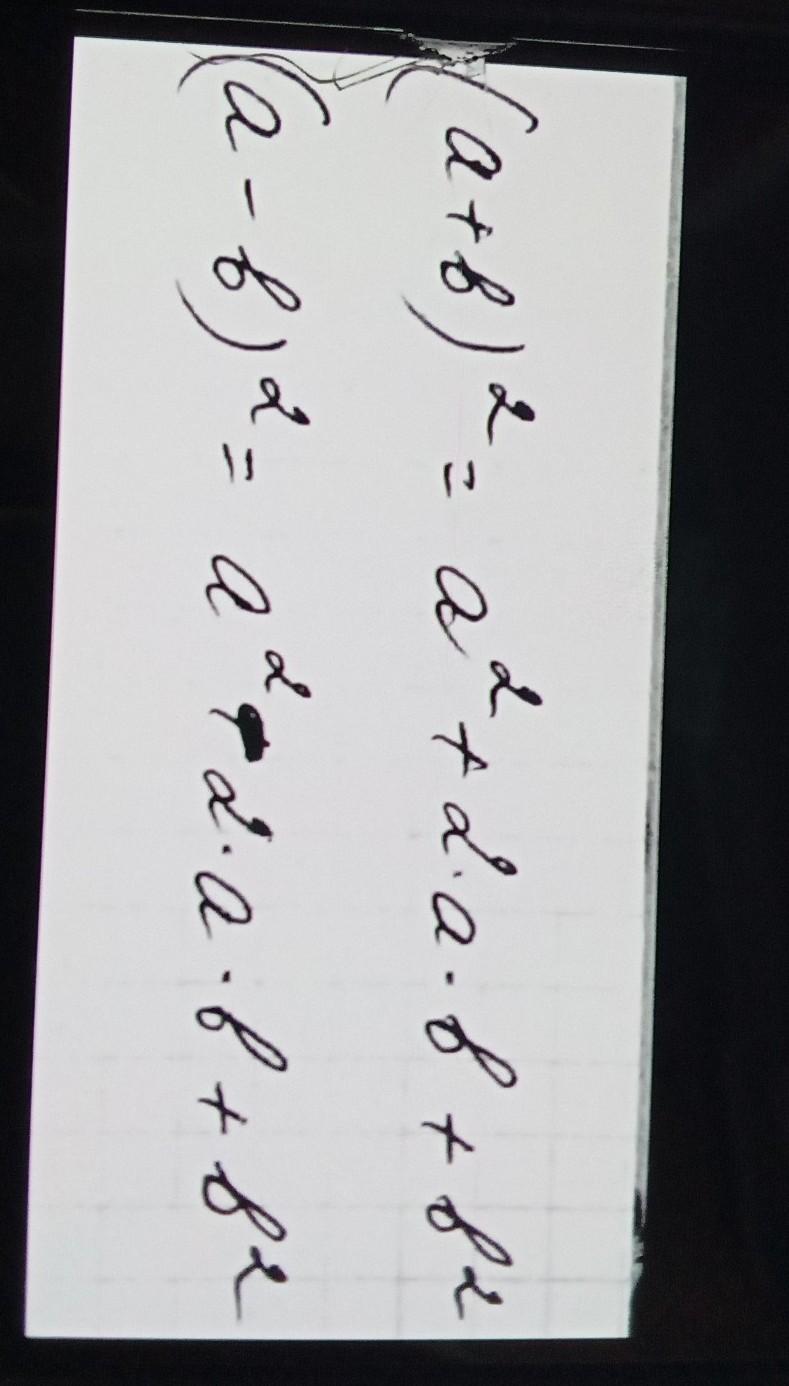 (a+b)² = a² + 2·a·b + b²
(a-b)² = a² - 2·a·b + b²